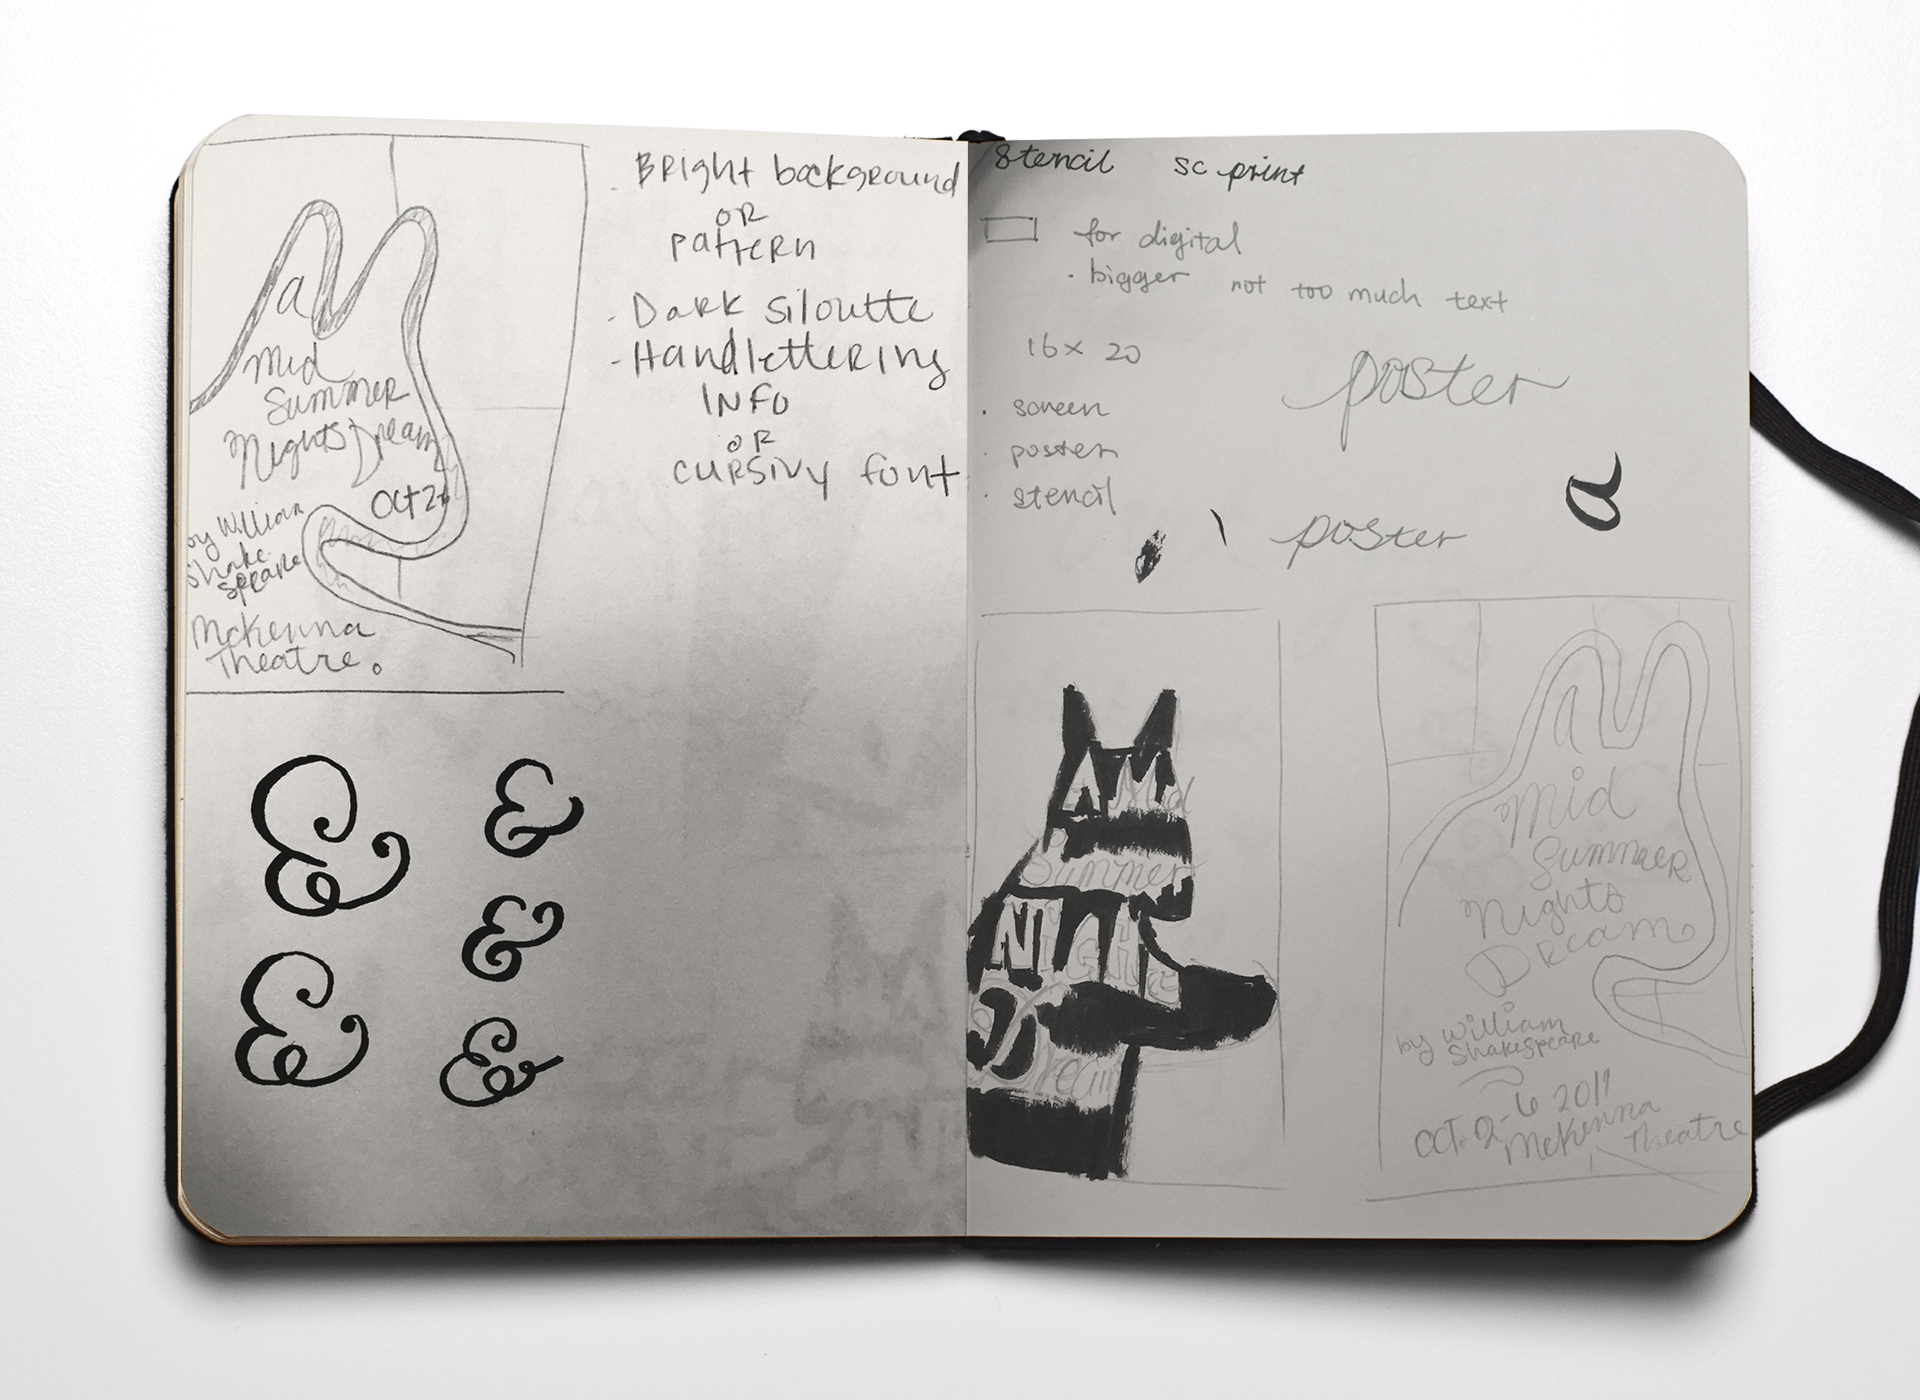 a
Mid
Summer
Nights Dream
Oct 2
by William
Shake
speare
McKenna
Theatre.
- Bright background
OR
pattern
- Dark siloutte
- Handlettering
INFO
OR
cursivy font
&
&
&
&
&
Stencil sc print
for digital
· bigger not too much text
16 x 20
· screen
· poster
· stencil
poster
poster
a
A Mid
Summer
Night
Dream
a
Mid
Summer
Nights
Dream
by William
Shakespeare
Oct. 2-6 2011
McKenna Theatre